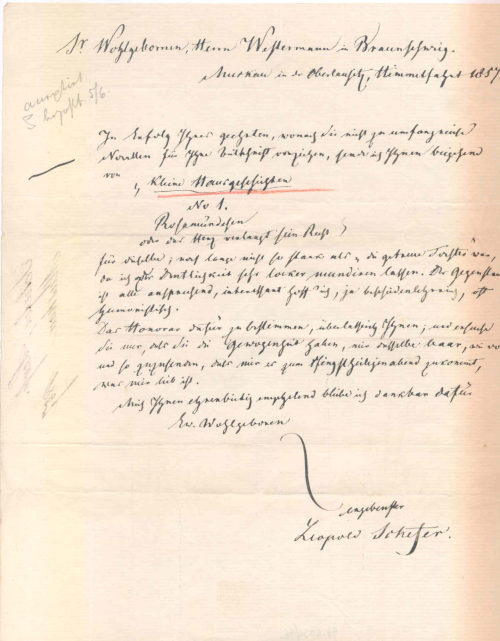 Sr Wohlgebornen, Herrn Westermann in Braunschweig.
Muskau in der Oberlausitz, Himmelfahrt 1857
In Erfolg Ihres geehrten, wonach Sie nicht zu umfangreiche
Novellen für Ihre vorziehen, sende ich Ihnen beigehend
von
„ Kleine Hausgeschichten
No 1.
Rosamündchen
oder das Herz verlangt sein Recht
für dieselbe; noch lange nicht so stark als „die getreue war,
da ich der Deutlichkeit sehr locker mundiren lassen. Der Gegenstand
ist allen ansprechend, interessant hoff' ich, ja oft
humoristisch.
Das Honorar dafür zu bestimmen, überlasse ich Ihnen; und ersuche
Sie nur, daß Sie die Gewogenheit haben, mir dasselbe baar,
und so zuzusenden, daß mir es zum Pfingstheiligenabend zukommt,
was mir lieb ist.
Mich Ihnen ehrerbietig empfehlend bleibe ich dankbar dafür
Ew. Wohlgeboren
ergebenster
Leopold Schefer.
5/6.